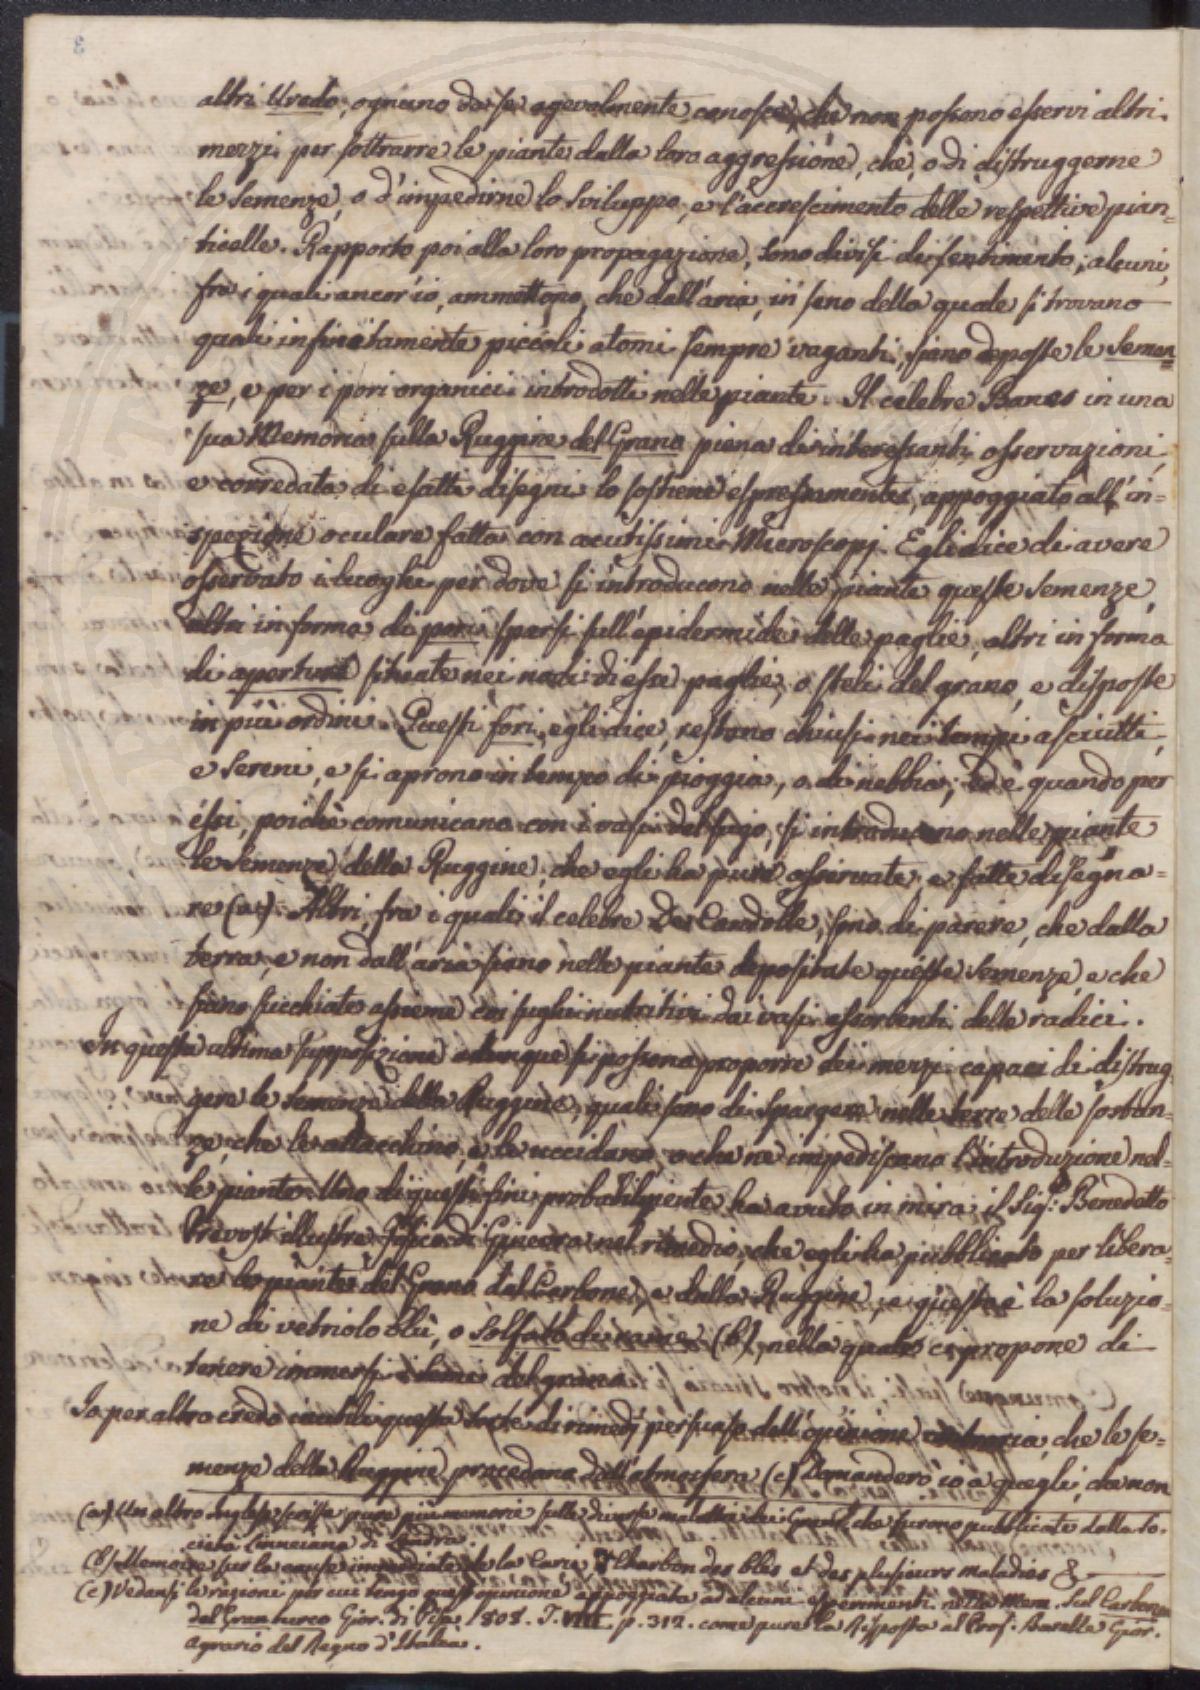 3
altri Uredo, ognuno da se agevolmente conosce, che non possono esservi altri
mezzi per sottrarre le piante dalla loro aggressione, che, o di distruggerne
le Semenze, o d'impedirne lo sviluppo, e l'accrescimento delle respettive pian=
ticelle. Rapporto poi alla loro propagazione, sono divisi di sentimento; alcuni,
fra i quali ancor'io, ammettono, che dall'aria, in seno della quale si trovano
quali infinitamente piccoli atomi sempre vaganti, siano deposte le Semen=
ze, e per i pori organici introdotti nelle piante. Il celebre Banks in una
sua Memoria sulla Ruggine del Grano piena di interessanti osservazioni,
e corredata di esatti disegni lo sostiene espressamente, appoggiato all'in=
spezione oculare fatta con acutissimi Microscopj. Egli dice di avere
osservato i luoghi per dove si introducono nelle piante queste Semenze,
altri in forma di pori sparsi sull'epidermide delle paglie, altri in forma
di aperture situate nei nodi di esse paglie, o steli del grano, e disposte
in più ordini. Questi fori, egli dice, restano chiusi nei tempi asciutti,
e Sereni, e si aprono in tempo di pioggia, o di nebbia; ed è quando per
essi, poichè comunicano con i vasi del sugo, si introducono nelle piante
le Semenze della Ruggine, che egli ha pure osservate, e fatte disegna=
re (a). Altri, fra i quali il celebre De Candolle, sono di parere, che dalla
terra, e non dall'aria siano nelle piante depositate queste Semenze, e che
siano succhiate assieme coi sughi nutritivi dai vasi assorbenti delle radici.
In questa ultima supposizione adunque si possono proporre dei mezzi capaci di distrug=
gere le semenze della Ruggine, quali sono di spargere nelle terre delle sostan=
ze, che le attacchino, e le uccidano, o che ne impediscano l'introduzione nel=
le piante. Uno di questi fini probabilmente ha avuto in mira il Sig.r Benedetto
Prevost illustre Fisico di Ginevra nel rimedio, che egli ha pubblicato per libera=
re le piante del Grano dal Carbone, e dalla Ruggine, e questo è la soluzio=
ne di vetriolo blù, o Solfato di rame (b), nella quale ci propone di
tenere immersi i semi del grano.
Io per altro credo inutili questa sorte di rimedj persuaso dell'opinione contraria, che le se=
menze della Ruggine procedano dall'atmosfera (c) Domanderò io a quegli, che non
(a) Un altro Inglese scrisse pure più memorie sulle diverse malattie dei Grani, che furono pubblicate dalla So.
cietà Linneiana di Londra.
(b) Memoire sur la cause immediate de la Carie, ou Charbon des blés et des plusieurs maladies &
(c) Vedansi le ragioni per cui tengo quest'opinione appoggiata ad alcuni esperimenti nella Mem. Sul Carbone
del Gran turco Gior. di Pisa 1808. T. VIII. p. 312. come pure la Risposta al Prof. Barelle Gior.
agrario del Regno d'Italia.